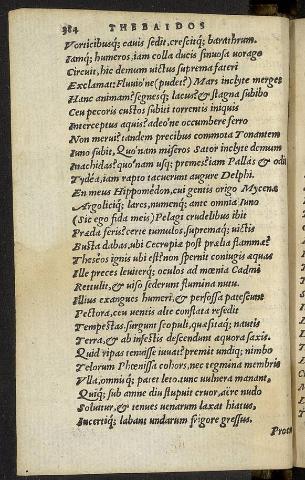 384 THEBAIDOS
Vorticibusq; cauis sedit, crescitq; barathrum.
Iamq; humeros, iam colla ducis sinuosa uorago
Circuit, hic demum uictus suprema fateri
Exclamat: Fluuio'ne (pudet?) Mars inclyte merges
Hanc animam? segnesq; lacus? & stagna subibo
Ceu pecoris custos subiti torrentis iniquis
Interceptus aquis? adeo'ne occumbere ferro
Non merui? tandem precibus commota Tonantem
Iuno subit, Quo'nam miseros Sator inclyte demum
Inachidas? quo'nam usq; premes? iam Pallas & odit
Tydea, iam rapto tacuerunt augure Delphi.
En meus Hippomedon, cui gentis origo Mycenæ
Argoliciq; lares, numenq; ante omnia Iuno
(Sic ego fida meis) Pelagi crudelibus ibit
Præda feris? certe tumulos, supremaq; uictis
Busta dabas, ubi Cecropiæ post prælia flammæ?
Theseos ignis ubi est? non spernit coniugis æquas
Ille preces leuiterq; oculos ad mœnia Cadmi
Rettulit, & uiso sederunt flumina nutu.
Illius exangues humeri, & perfossa patescunt
Pectora, ceu uentis alte constata resedit
Tempestas, surgunt scopuli, quæsitaq; nautis
Terra, & ab infestis descendunt aquora saxis.
Quid ripas tenuisse iuuat? premit undiq; nimbo
Telorum Phœnissa cohors, nec tegmina membris
Vlla, omniq́; patet leto. tunc uulnera manant,
Quiq́; sub amne diu stupuit cruor, aëre nudo
Soluitur, & tenues uenarum laxat hiatus,
Incertiq́; labant undarum frigore gressus.
Procu